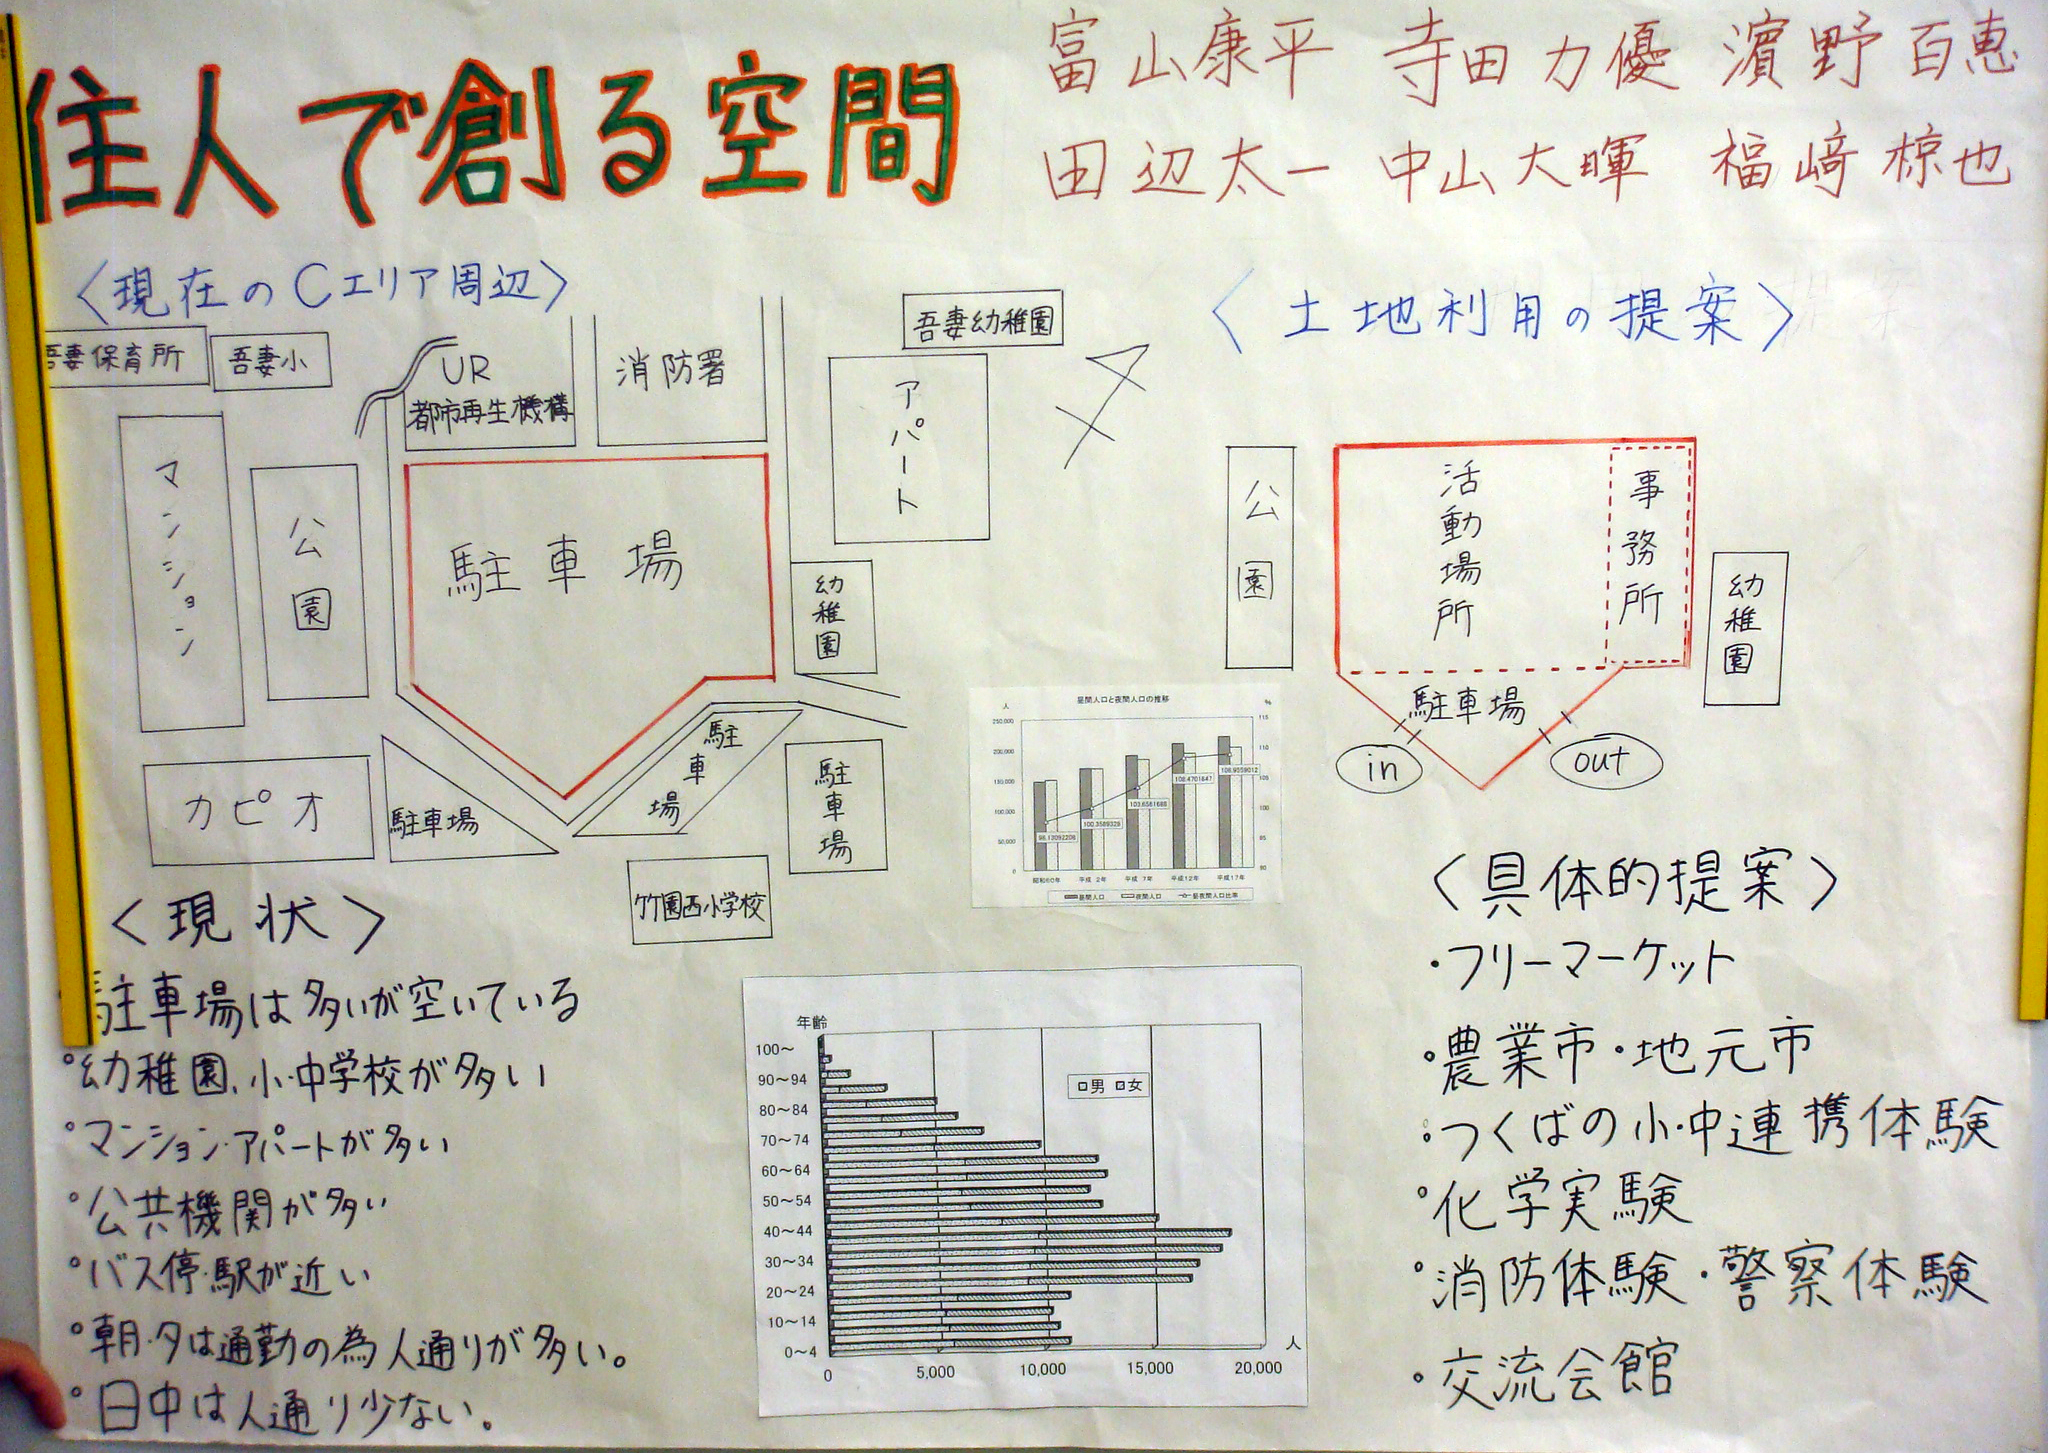 住人で創る空間
富山康平 寺田力優 濵野百恵
田辺太一 中山大暉 福﨑椋也
〈現在のCエリア周辺〉
吾妻保育所
吾妻小
UR
都市再生機構
消防署
吾妻幼稚園
アパート
マンション
公園
駐車場
幼稚園
カピオ
駐車場
駐車場
駐車場
竹園西小学校
〈土地利用の提案〉
公園
活動場所
事務所
幼稚園
駐車場
in
out
昼間人口と夜間人口の推移
人
%
250,000
200,000
150,000
100,000
50,000
0
115
110
105
100
95
90
98.13092206
100.3589329
103.6581688
108.4701847
108.9559012
昭和60年 平成 2年 平成 7年 平成12年 平成17年
昼間人口 夜間人口 昼夜間人口比率
〈現状〉
駐車場は多いが空いている
°幼稚園、小・中学校が多い
°マンション・アパートが多い
°公共機関が多い
°バス停・駅が近い
°朝・夕は通勤の為人通りが多い。
°日中は人通り少ない。
年齢
100～
90～94
80～84
70～74
60～64
50～54
40～44
30～34
20～24
10～14
0～4
男 女
0 5,000 10,000 15,000 20,000
人
〈具体的提案〉
・フリーマーケット
・農業市・地元市
・つくばの小・中連携体験
°化学実験
°消防体験・警察体験
・交流会館